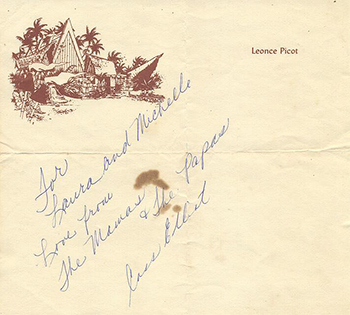 Leonce Picot
For
Laura and Michelle
Love from
The Mamas & The Papas
Cass Elliot